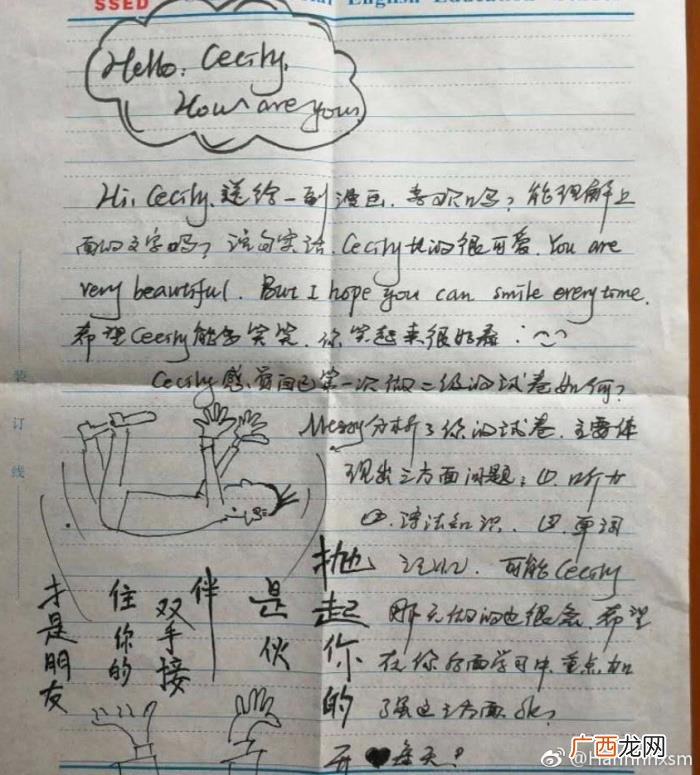 SSED
English Education
Hello. Cecily.
How are you.
Hi, Cecily, 送给一副漫画. 喜欢吗? 能理解上
面的文字吗? 说句实话, Cecily 长的很可爱. You are
very beautiful. But I hope you can smile everytime.
希望Cecily能多笑笑. 你笑起来很好看
Cecily 感觉自己第一次做二级的试卷如何?
分析了你的试卷. 主要体
现出三方面问题: ①. 听力
②. 语法知识. ③. 单词
可能Cecily
那天做的也很急. 希望
在你后面学习中, 重点加
强这三方面. ok?
开♥每天?
抛起你的
是伙
伴
双手接
住你的
才是朋友
装订线
@Hannnnxsm
广西龙网